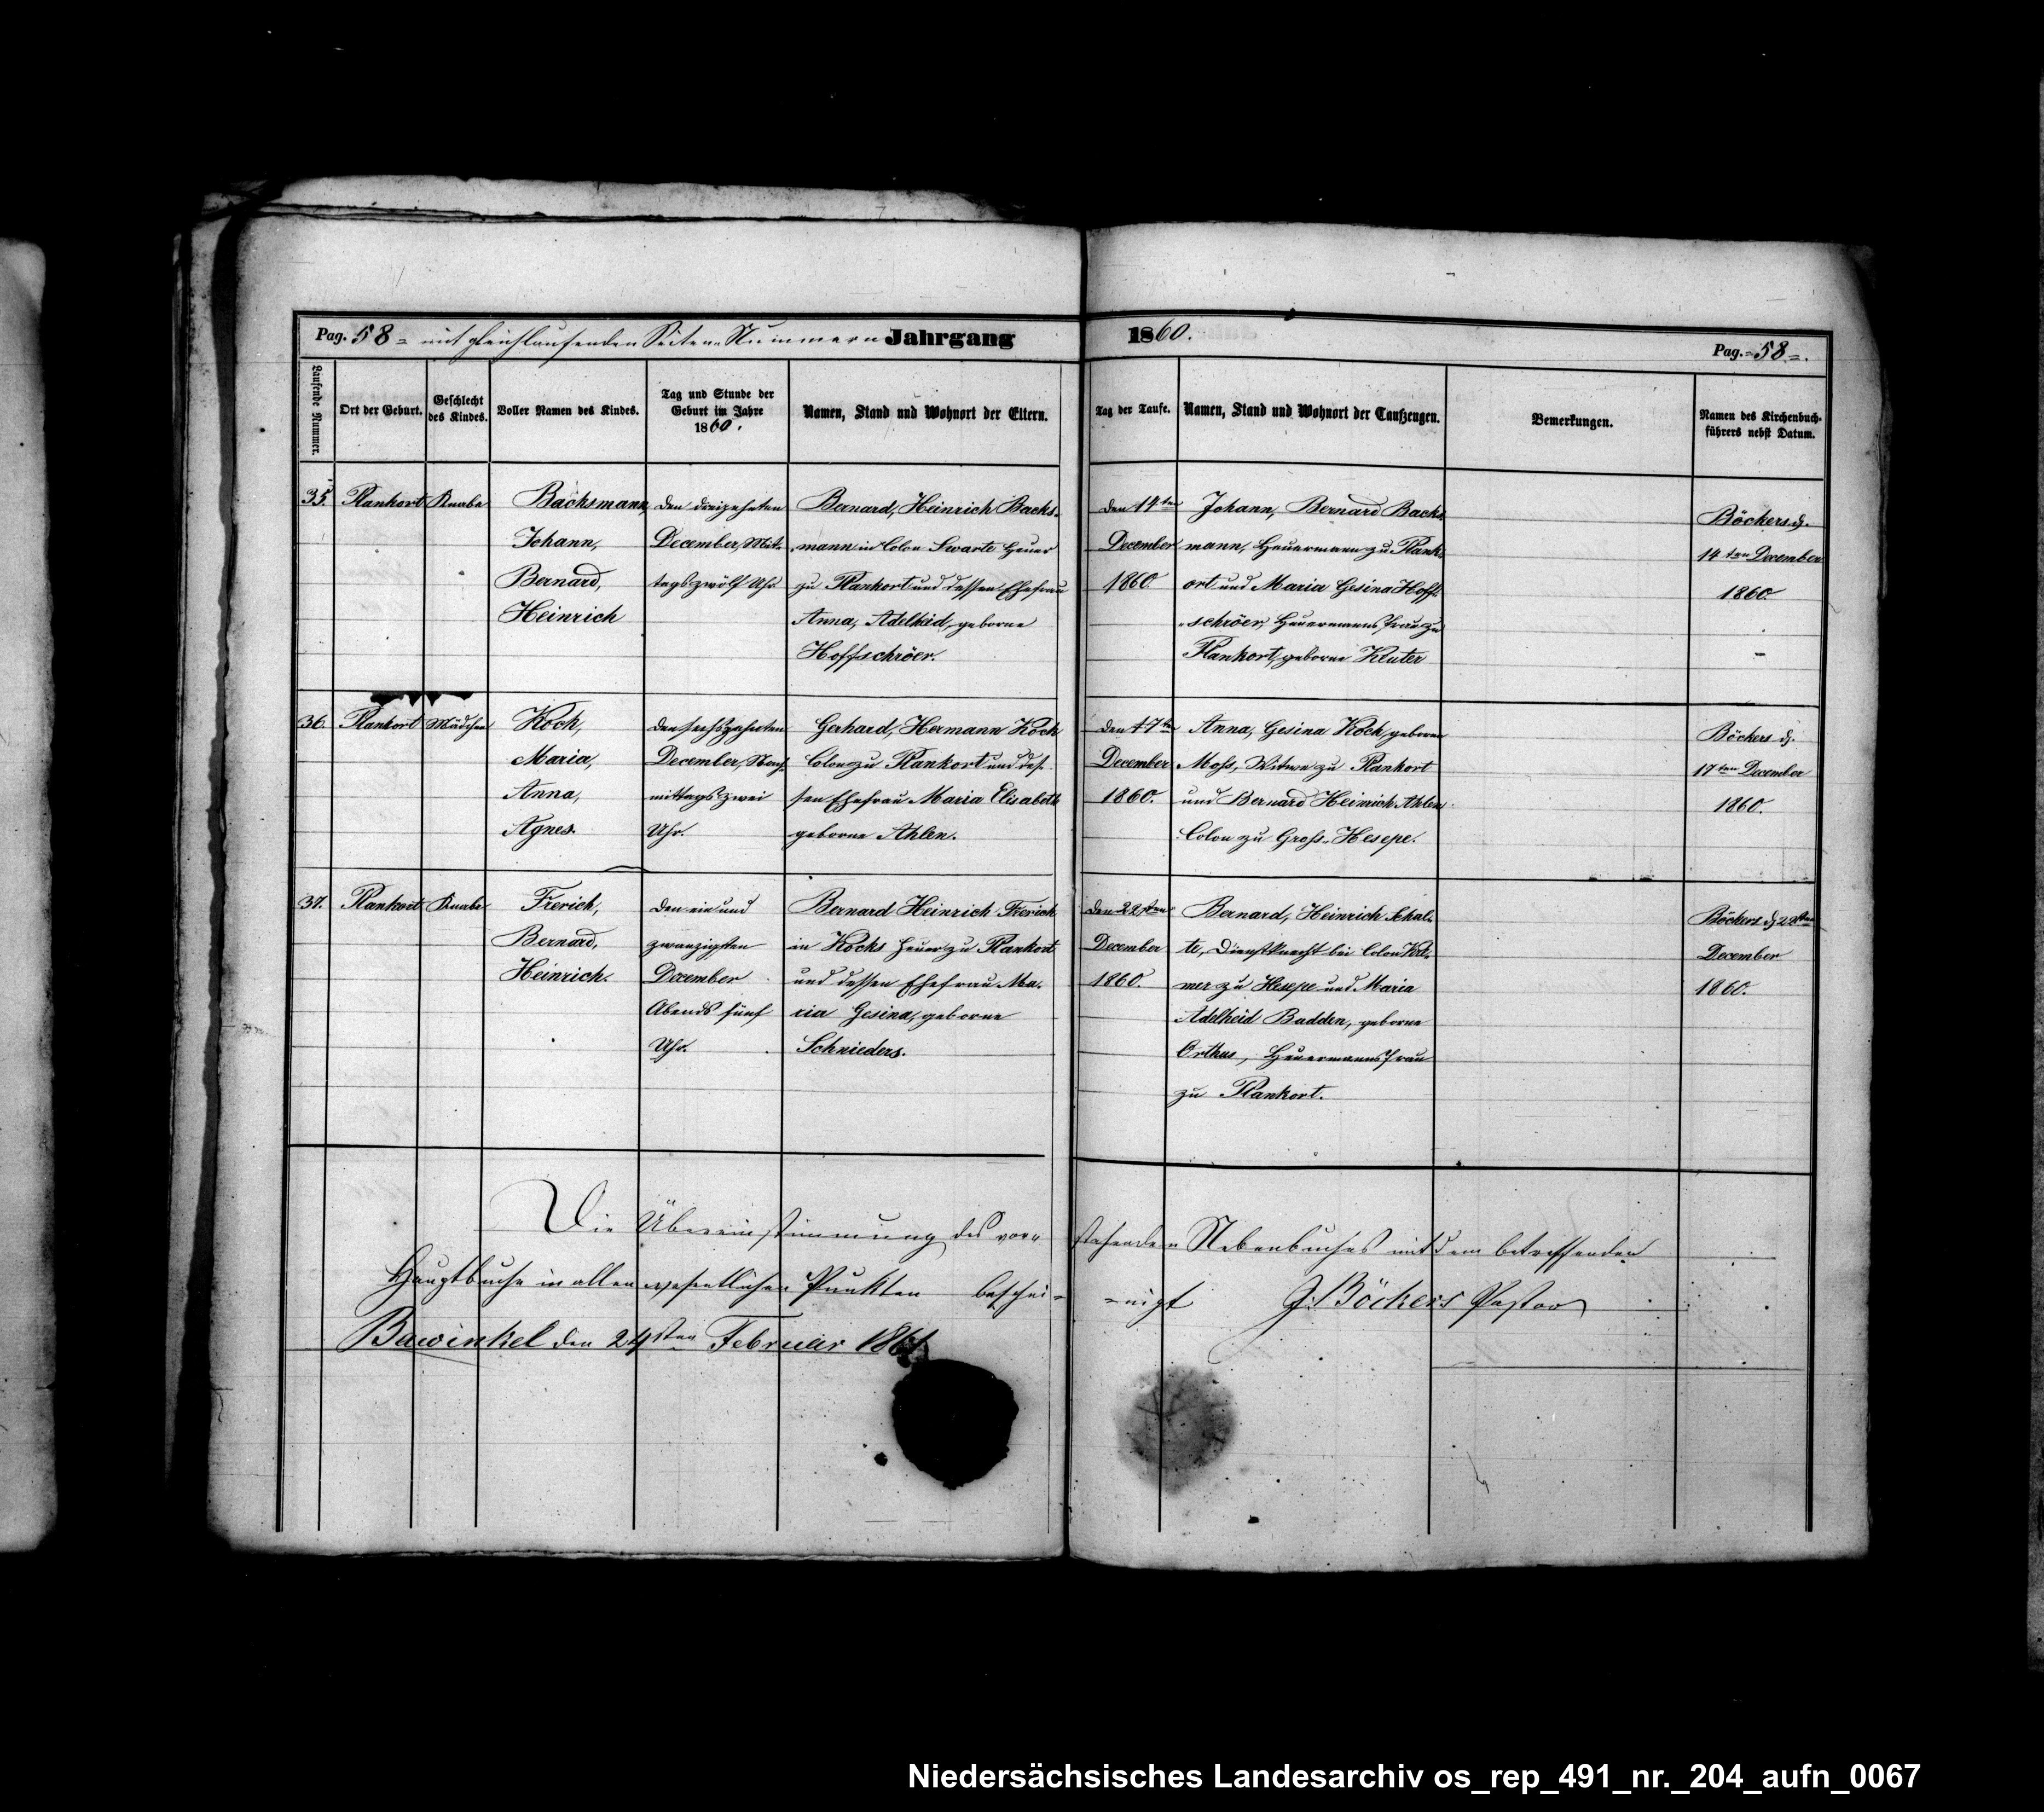 Pag. 58 = mit gleichlaufenden Seiten-Nummern Jahrgang 1860. Pag. =58=.
Laufende Nummer.
Ort der Geburt.
Geschlecht
des Kindes.
Voller Namen des Kindes.
Tag und Stunde der
Geburt im Jahre
1860.
Namen, Stand und Wohnort der Eltern.
Tag der Taufe.
Namen, Stand und Wohnort der Taufzeugen.
Bemerkungen.
Namen des Kirchenbuch-
führers nebst Datum.
35.
Plankort
Knabe
Backsmann,
Johann,
Bernard,
Heinrich
den dreizehnten
December, Mit-
tags zwölf Uhr
Bernard, Heinrich Backs-
mann in Colon Swarte Heuer
zu Plankort und dessen Ehefrau
Anna, Adelheid, geborne
Hoffschröer.
den 14ten
December
1860.
Johann, Bernard Backs-
mann, Heuermann zu Plank-
ort und Maria Gesina Hoff-
schröer, Heuermanns Frau zu
Plankort, geborne Kluter
Böckers d.
14ten December
1860.
36.
Plankort
Mädchen
Koch,
Maria,
Anna,
Agnes.
den sechszehnten
December, Nach-
mittags zwei
Uhr.
Gerhard, Hermann Koch
Colon zu Plankort und des-
sen Ehefrau Maria Elisabeth
geborne Ahlen.
den 17ten
December
1860.
Anna, Gesina Koch, geborne
Moss, Witwe zu Plankort
und Bernard Heinrich Ahlen
Colon zu Gross-Hesepe.
Böckers d.
17ten December
1860.
37.
Plankort
Knabe
Frerich,
Bernard,
Heinrich.
den ein und
zwanzigsten
December
Abends fünf
Uhr.
Bernard Heinrich Frerich
in Kocks Heuer zu Plankort
und dessen Ehefrau Ma-
ria Gesina, geborne
Schnieders.
den 22sten
December
1860.
Bernard, Heinrich Schul-
te, Dienstknecht bei Colon
mer zu Hesepe und Maria
Adelheid Badden, geborne
Heuermannsfrau
zu Plankort.
Böckers d. 22sten
December
1860.
Die Übereinstimmung des vor- stehenden Nebenbuches mit dem betreffenden
Hauptbuche in allen wesentlichen Punkten beschei- =nigt J. Böckers Pastor
Bawinkel den 24sten Februar 1861
Niedersächsisches Landesarchiv os_rep_491_nr._204_aufn_0067